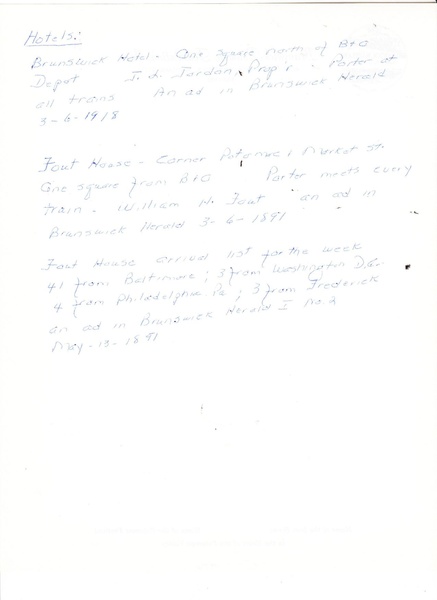 Hotels:
Brunswick Hotel - One square north of B+O
Depot J. d. Jordan, Prop'r - Porter at
all trains An ad in Brunswick Herald
3-6-1918
Fout House - Corner Potomac & Market St.
One square from B+O Porter meets every
train - William H. Fout an ad in
Brunswick Herald 3-6-1891
Fout House arrival list for the week
41 from Baltimore; 3 from Washington D.C.
4 from Philadelphia Pa; 3 from Frederick
an ad in Brunswick Herald I No. 2
May-15-1891